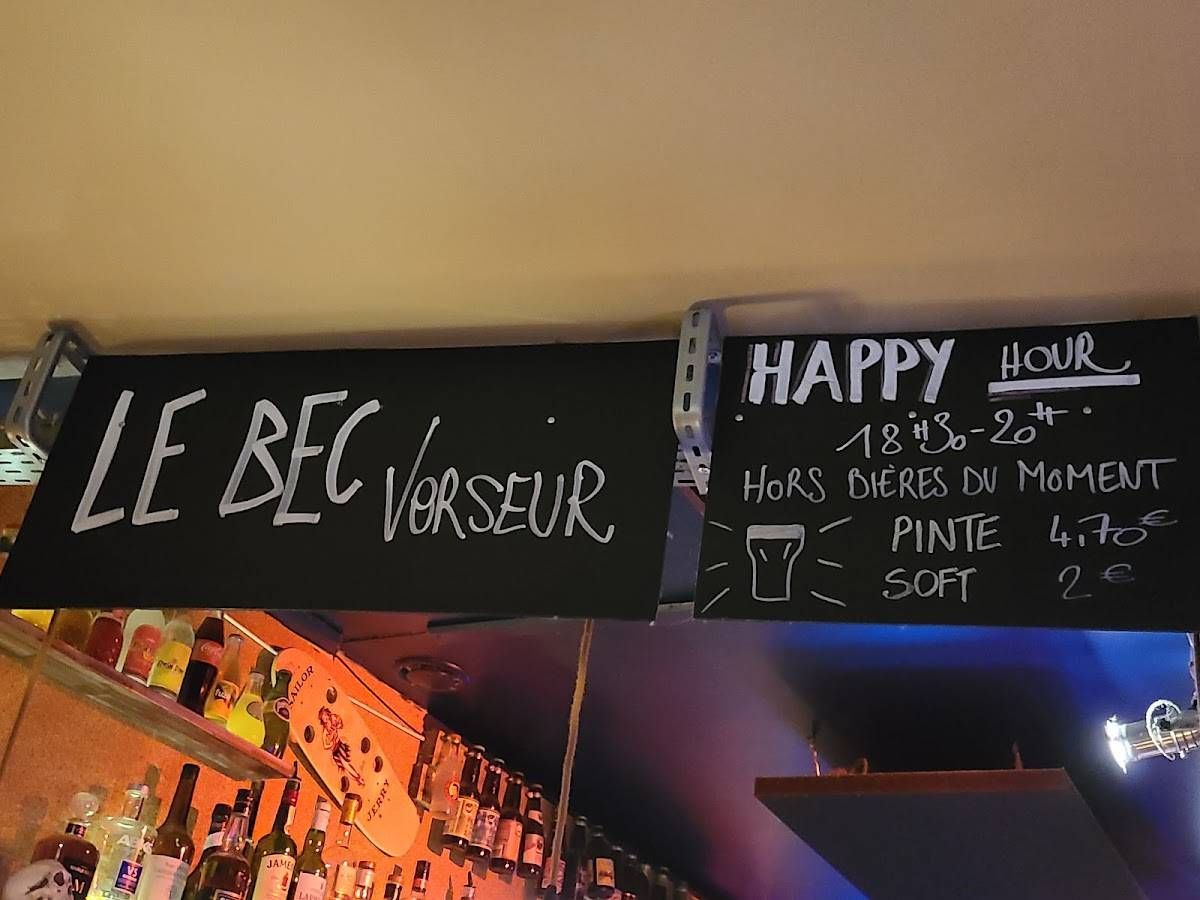 LE BEC VERSEUR
HAPPY HOUR
18H30-20H
HORS BIÈRES DU MOMENT
PINTE 4,70€
SOFT 2€
SAILOR
JERRY
JAMES